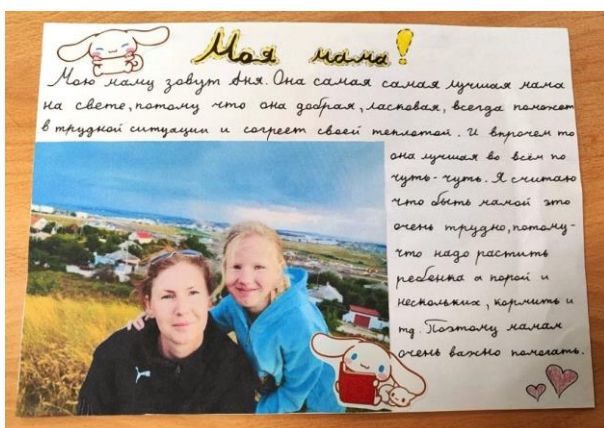 Моя мама!
Мою маму зовут Аня. Она самая самая лучшая мама
на свете, потому что она добрая, ласковая, всегда поможет
в трудной ситуации и согреет своей теплотой. И впрочем то
она лучшая во всём по
чуть-чуть. Я считаю
что быть мамой это
очень трудно, потому-
что надо растить
ребёнка а порой и
нескольких, кормить и
тд. Поэтому мамам
очень важно помогать.